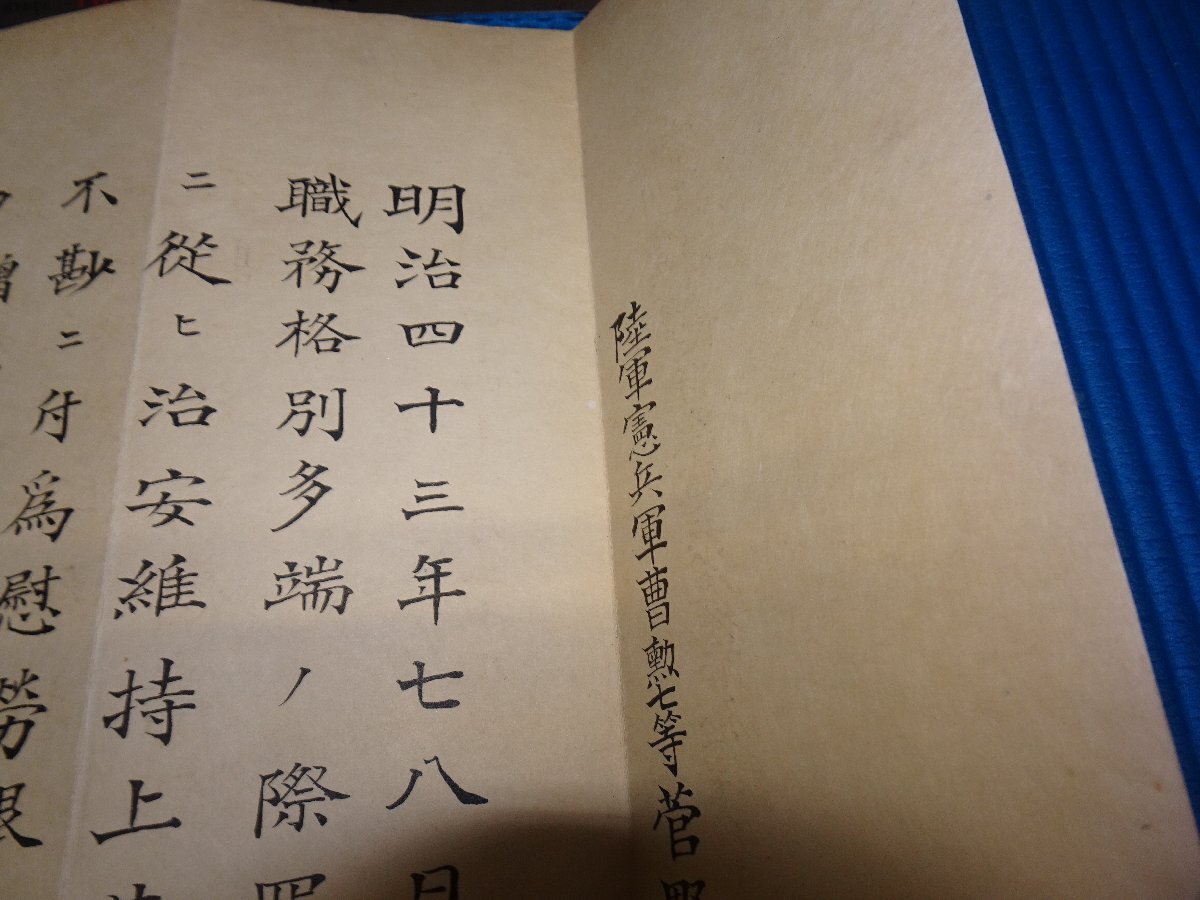 陸軍憲兵軍曹勲七等菅野
明治四十三年七八月
職務格別多端ノ際
ニ從ヒ治安維持上
不尠ニ付爲慰勞